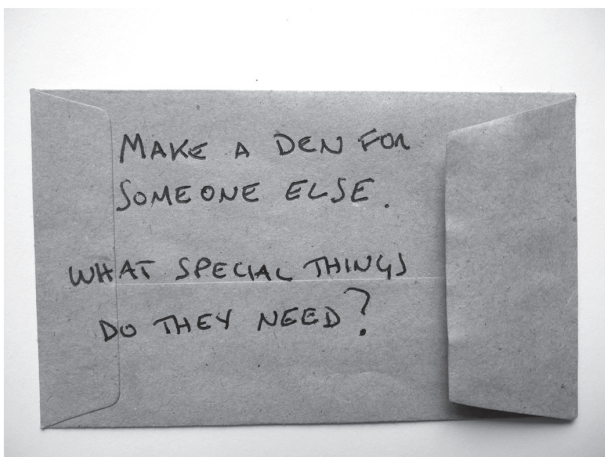 MAKE A DEN FOR
SOMEONE ELSE.
WHAT SPECIAL THINGS
DO THEY NEED?